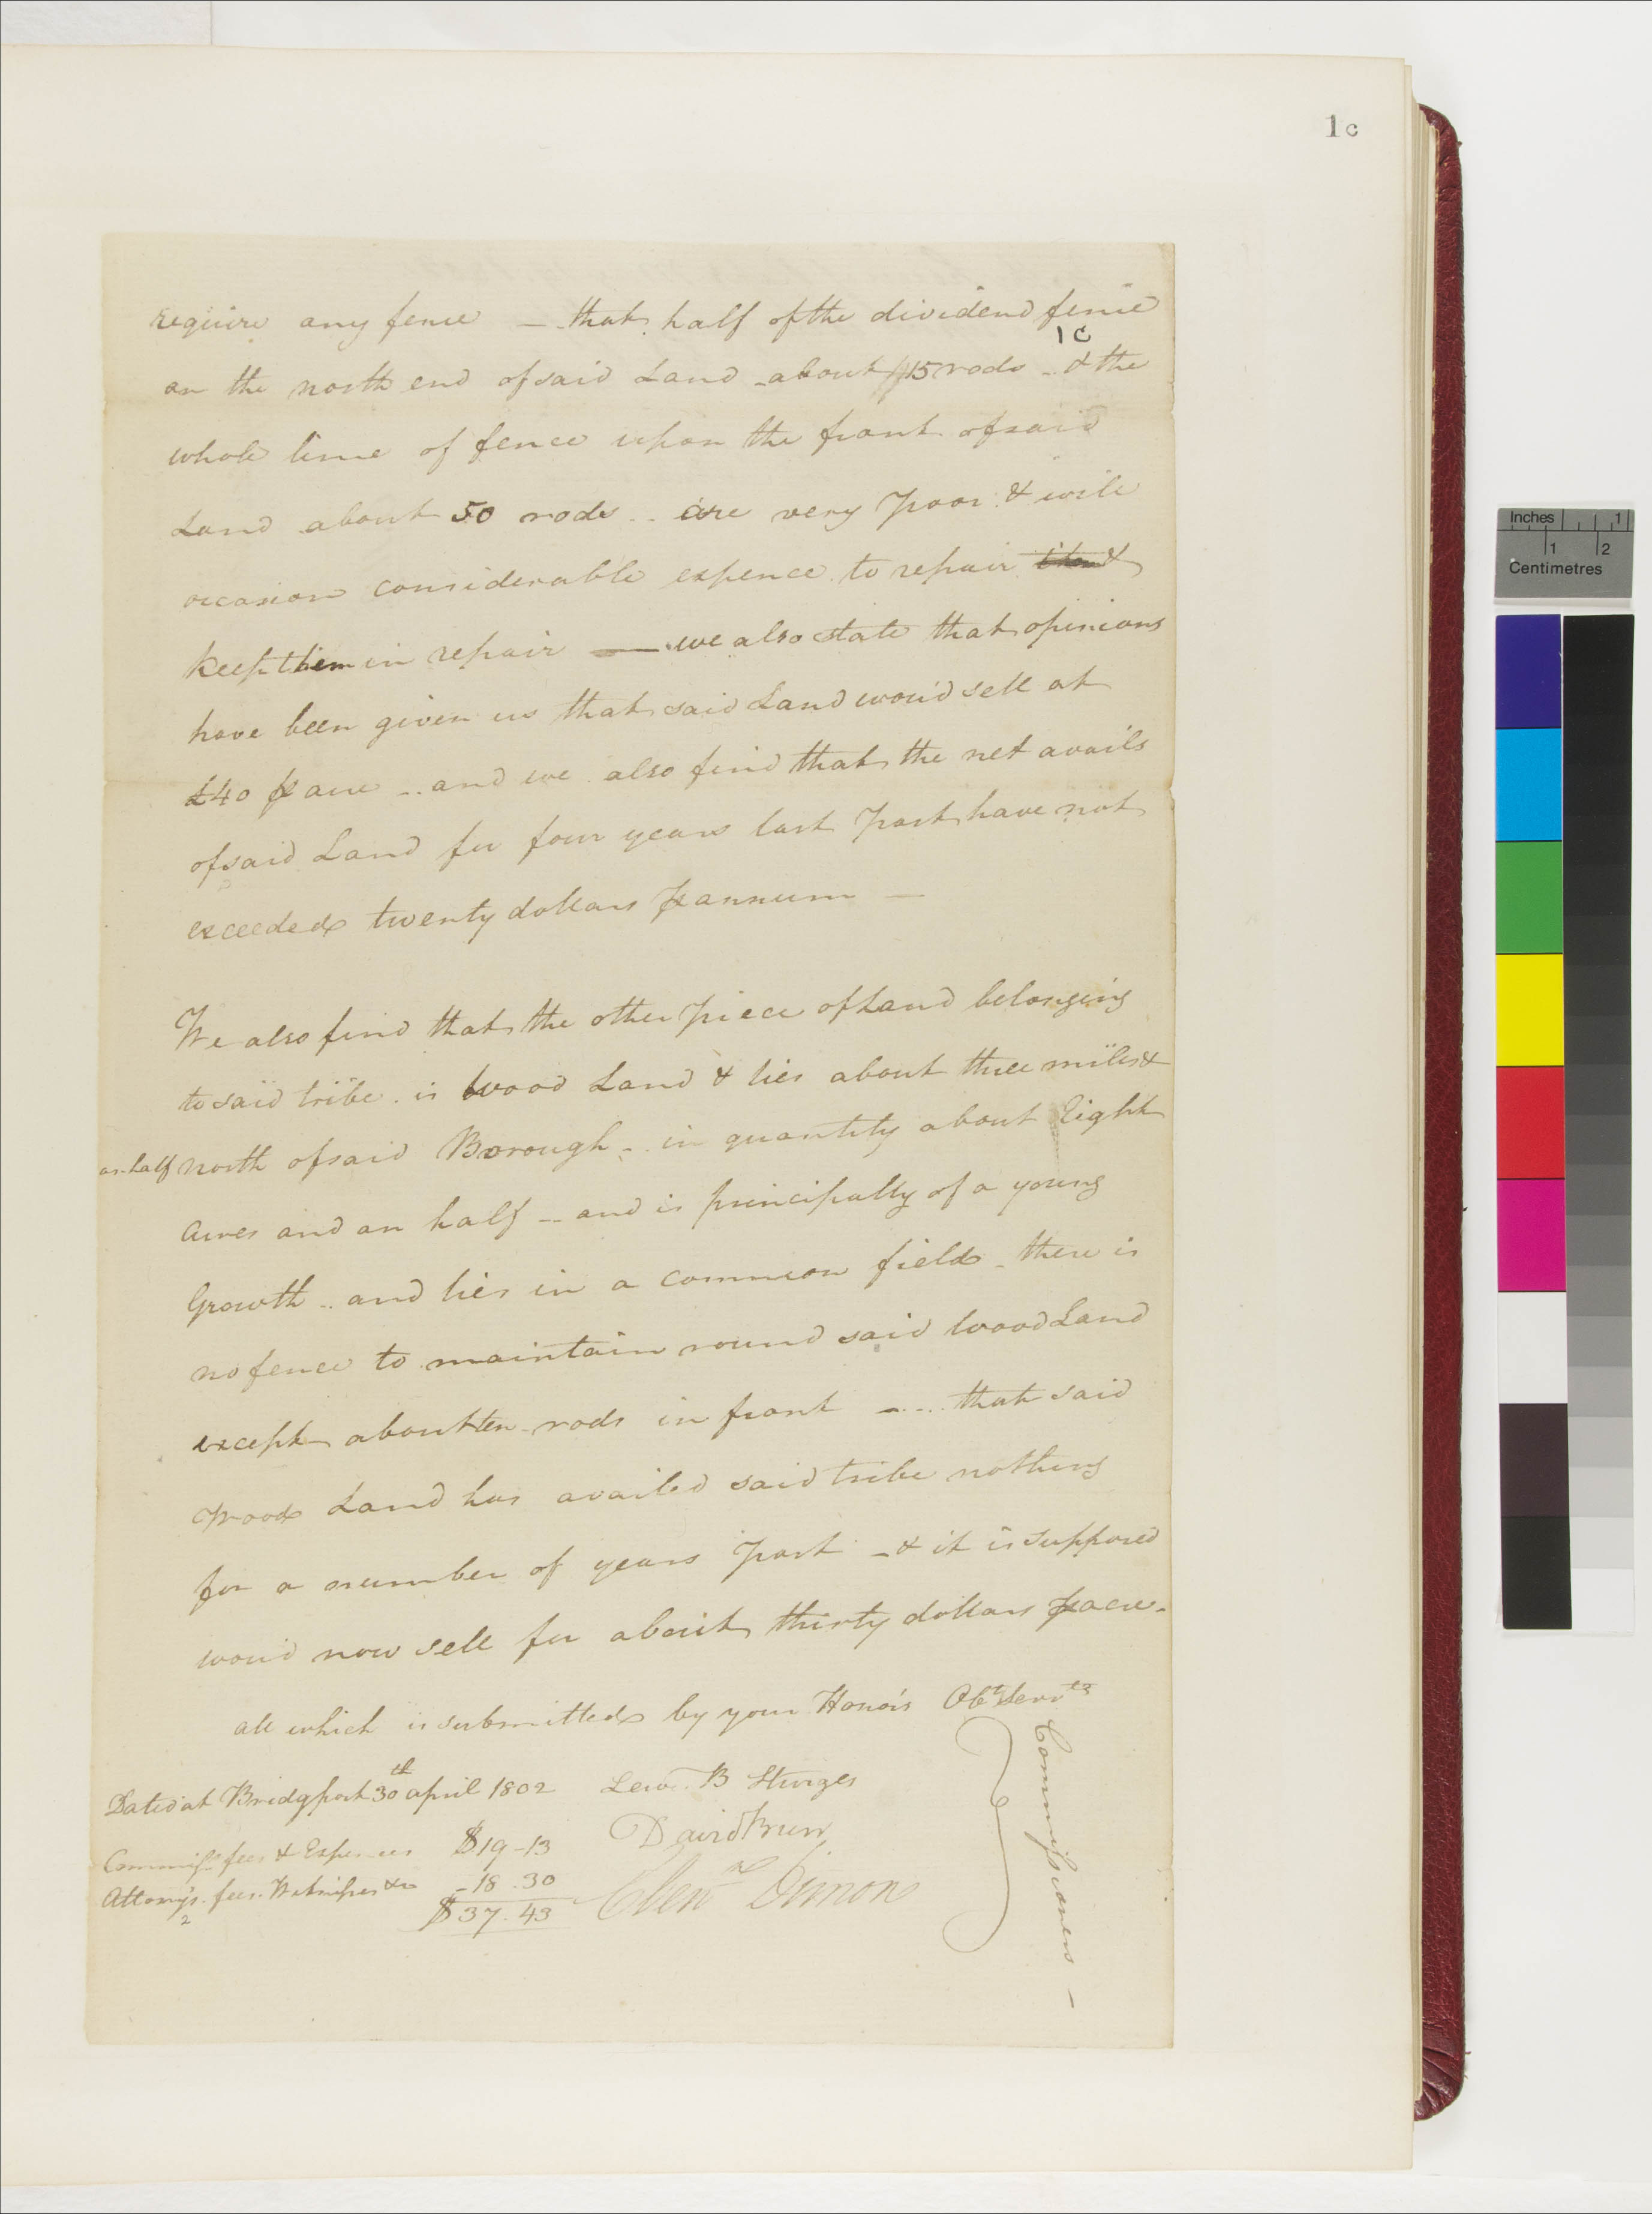 1c
require any fence — that half of the dividend fence
1C
on the north end of said Land - about 15 rods - & the
whole line of fence upon the front of said
Land about 50 rods .. are very poor & will
occasion considerable expence to repair &
keep them in repair — we also state that opinions
have been given us that said Land wou'd sell at
£40 ⅌ acre .. and we also find that the net avails
of said Land for four years last past have not
exceeded twenty dollars ⅌ annum —
We also find that the other piece of Land belonging
to said tribe is Wood Land & lies about three miles &
an half north of said Borough - in quantity about Eight
Acres and an half - and is principally of a young
Growth .. and lies in a common field - there is
no fence to maintain round said Wood Land
except about ten rods in front - ... that said
Wood Land has availed said tribe nothing
for a number of years past - & it is supposed
wou'd now sell for about thirty dollars ⅌ acre -
all which is submitted by your Honors Obt Servts
Dated at Bridgport 30th april 1802 Lewis B Sturges
Commiss fees & Expences $19-13 David Burr
Attorny's fees Witnesses &c -18.30 Ebenr Dimon
2
$37.43
Commissioners -
Inches 1
1 2
Centimetres